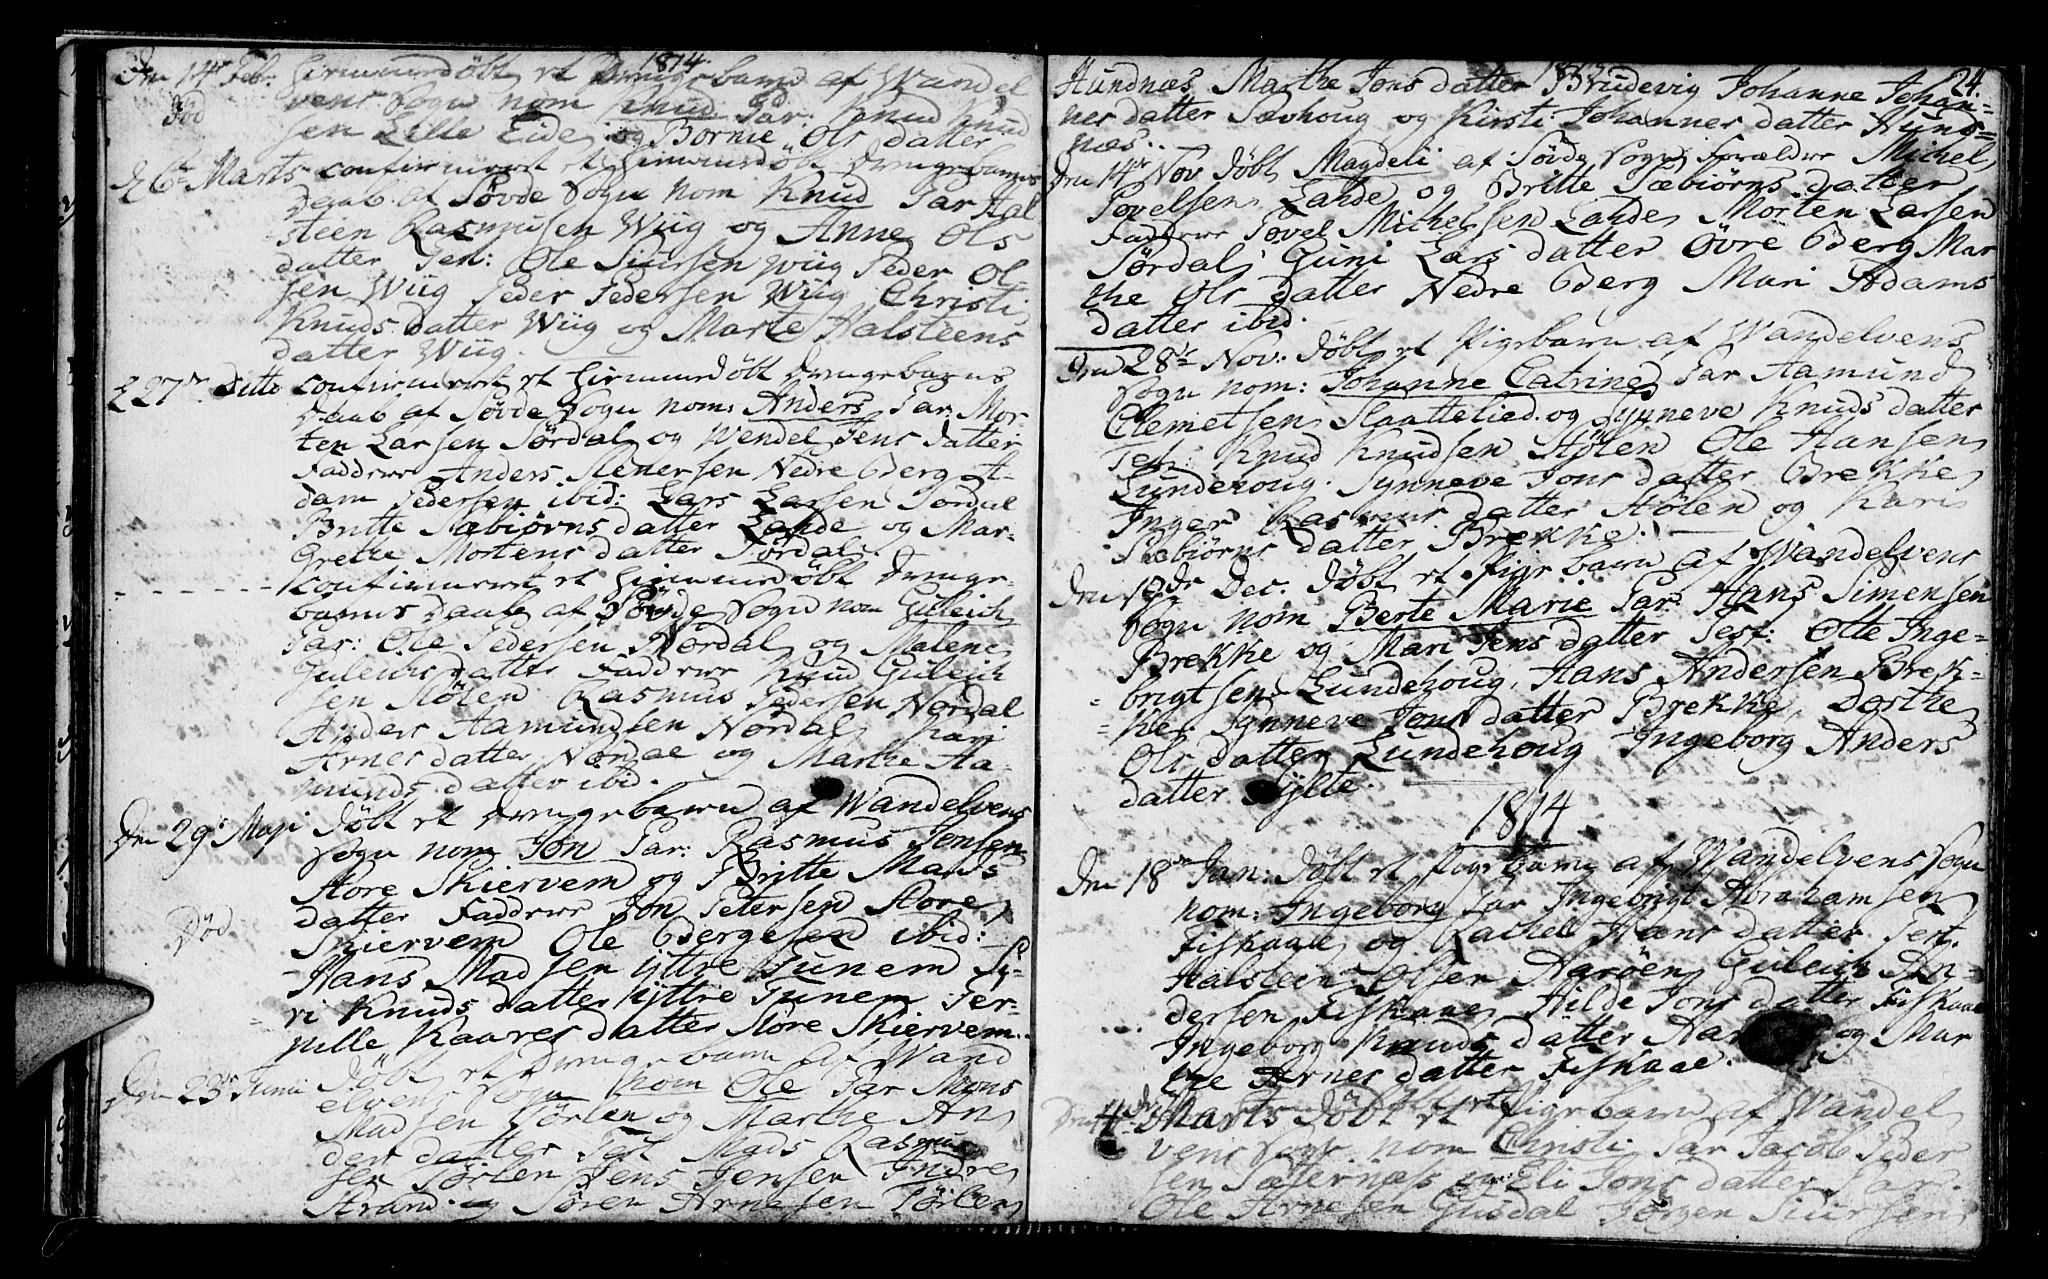 1814.
Den 14de Feb: hiemmedöbt et Drengebarn af Wandel
vens Sogn nom Knud Par. Knud Knud
Död
sen Lille Eide og Bornie Ols datter
d 6te Marts confirmeret et hiemmedöbt Drengebarns
Daab af Søvde Sogn nom Knud Par Hal
steen Rasmussen Wiig og Anne Ols
datter Test: Ole Siursen Wiig Peder Ol
sen Wiig Peder Pedersen Wiig Christi
Knuds datter Wiig og Marte Halsteens
datter Wiig.
d 27de Ditto confirmeret et hiemmedöbt Drengebarns
Daab af Søvde Sogn nom: Anders Par: Mor-
ten Larsen Sørdal og Wendel Jens datter
Faddere Anders Stenersen Nedre Berg A-
dam Pedersen ibid: Lars Larsen Sørdal
Britte Sæbiørns datter Lahde og Mar-
grethe Mortens datter Sørdal.
confirmeret et hiemmedöbt Drenge-
barns Daab af Søvde Sogn nom Guleich
Par: Ole Pedersen Nordal og Malene
Guleichs datter Faddere Knud Guleich
sen Stölen Rasmus Pedersen Nordal
Anders Aamundsen Nordal Kari
Arnes datter Nordal og Marthe Aa-
munds datter ibid.
Den 29de Maji Döbt et Drengebarn af Wandelvens
Sogn nom Jon Par: Rasmus Jonsen
Store Skiervem og Britte Mads
datter Faddere Jon Petersen Store
Död
Skiervem Ole Bergesen ibid:
Hans Madsen yttre Tunem Sy-
ri Knuds datter yttre Tunem Per-
nille Kaares datter Store Skiervem.
Den 23de Junii Döbt et Drengebarn af Wand
elvens Sogn nom Ole Par Mons
Madsen Törlen og Marthe An
ders datter Test Mads Rasmus
sen Törlen Jens Jensen Indre
Strand og Sören Arnesen Törlen
24.
Hundnæs Marthe Jons datter Brudevig Johanne Johan-
nes datter Søvhoug og Kirsti Johannes datter Hund-
næs.
Den 14de Nov Döbt Magdeli af Søvde Sogn Forældre Michel
Povelsen Lahde og Britte Sæbiørns datter
Faddere Povel Michelsen Lahde Morten Larsen
Sørdal Guni Lars datter Övre Berg Mar
the Ols datter Nedre Berg Mari Adams
datter ibid.
Den 28de Nov: Döbt et Pigebarn af Wandelvens
Sogn nom: Johanne Catrine Par Aamund
Clemetsen Slaattelied og Synneve Knuds datter
Test Knud Knudsen Stölen Ole Hansen
Lundehoug Synneve Jons datter Brekke
Inger Rasmus datter Stölen og Karis
Sæbiörns datter Brekke.
Den 12de Dec. Döbt et Pige barn af Wandelvens
Sogn nom Berte Marie Par: Hans Simensen
Brekke og Mari Jens datter Test: Otte Inge-
brigtsen Lundehoug, Hans Andersen Brek-
ke Synneve Jons datter Brekke, Dorthe
Ols datter Lundehoug Ingeborg Anders
datter Sylte.
1814
Den 18de Jan: Döbt et Pigebarn af Wandelvens Sogn
nom: Ingeborg Par Ingebrigt Abrahamsen
Fiskaae og Rachel Hans datter Test.
Halsteen Olsen Aaröen Guleich An-
dersen Fiskaae Hilde Jons datter Fiskaae
Ingeborg Knuds datter og Mar
the Arnes datter Fiskaae.
Den 4de Marts Döbt et Pigebarn af Wandel
vens Sogn nom Christi Par Jacob Peder
sen Sæternæs og Eli Jons datter Par.
Ole Arnesen Giusdal Jörgen Siursen